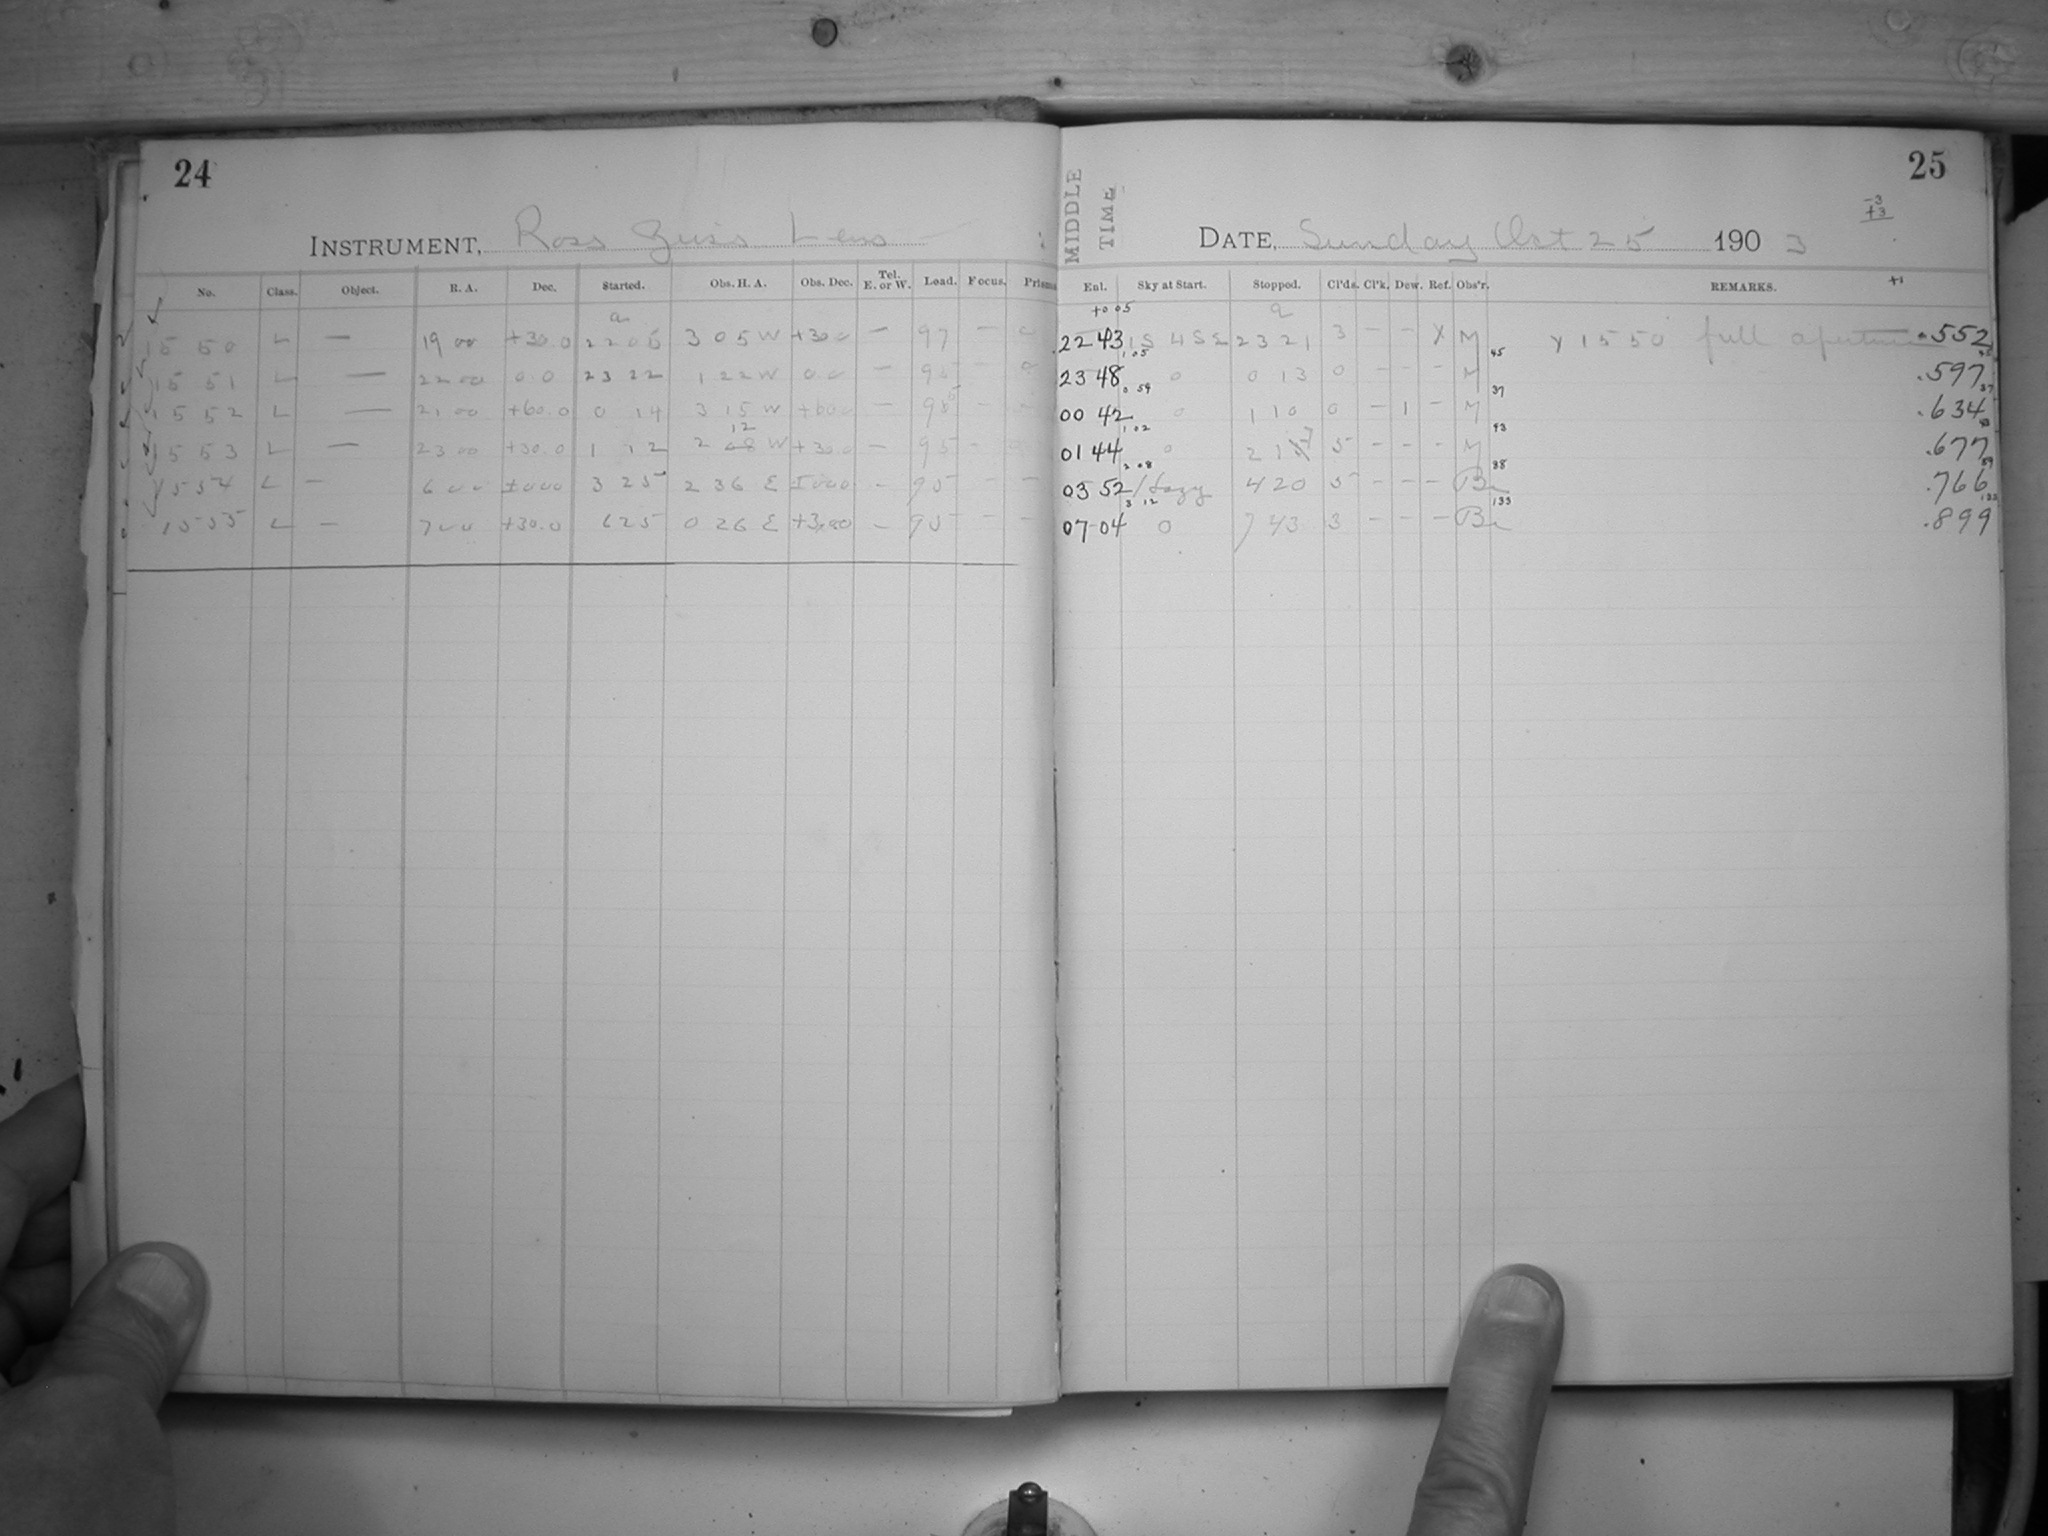 24
INSTRUMENT, Ross Zeiss Lens
No. Class. Object. R. A. Dec. Started. Obs. H. A. Obs. Dec. Tel. E. or W. Load. Focus. Prism
a
1550 L — 19 00 +30.0 22 05 3 05 W +30 0 — 97 –
1551 L — 22 00 0 0 23 22 1 22 W 0 0 — 95 –
1552 L — 21 00 +60.0 0 14 3 15 W +60 0 — 95 –
12
1553 L — 23 00 +30.0 1 12 2 08 W +30.0 — 95 –
1554 L — 6 00 3 25 2 36 E – 95 – –
1555 L — 7 00 +30.0 6 25 0 26 E +30.0 – 95 – –
25
MIDDLE TIME
-3
+3
DATE, Sunday Oct 25 190 3
+1
Enl. Sky at Start. Stopped. Cl'ds. Cl'k. Dew. Ref. Obs'r. REMARKS.
+0 05
22 43 1S 4SE 23 21 3 – – X M X 1550 full aperture .552
1 05 45 45
23 48 0 0 13 0 – – – M .597
0 54 37 37
00 42 0 1 10 0 – 1 – M .634
1 02 43 43
01 44 0 2 1 5 – – – M .677
2 08
03 52 1 hazy 4 20 5 – – – Br .766
3 12 133 133
07 04 0 7 43 3 – – – Br .899